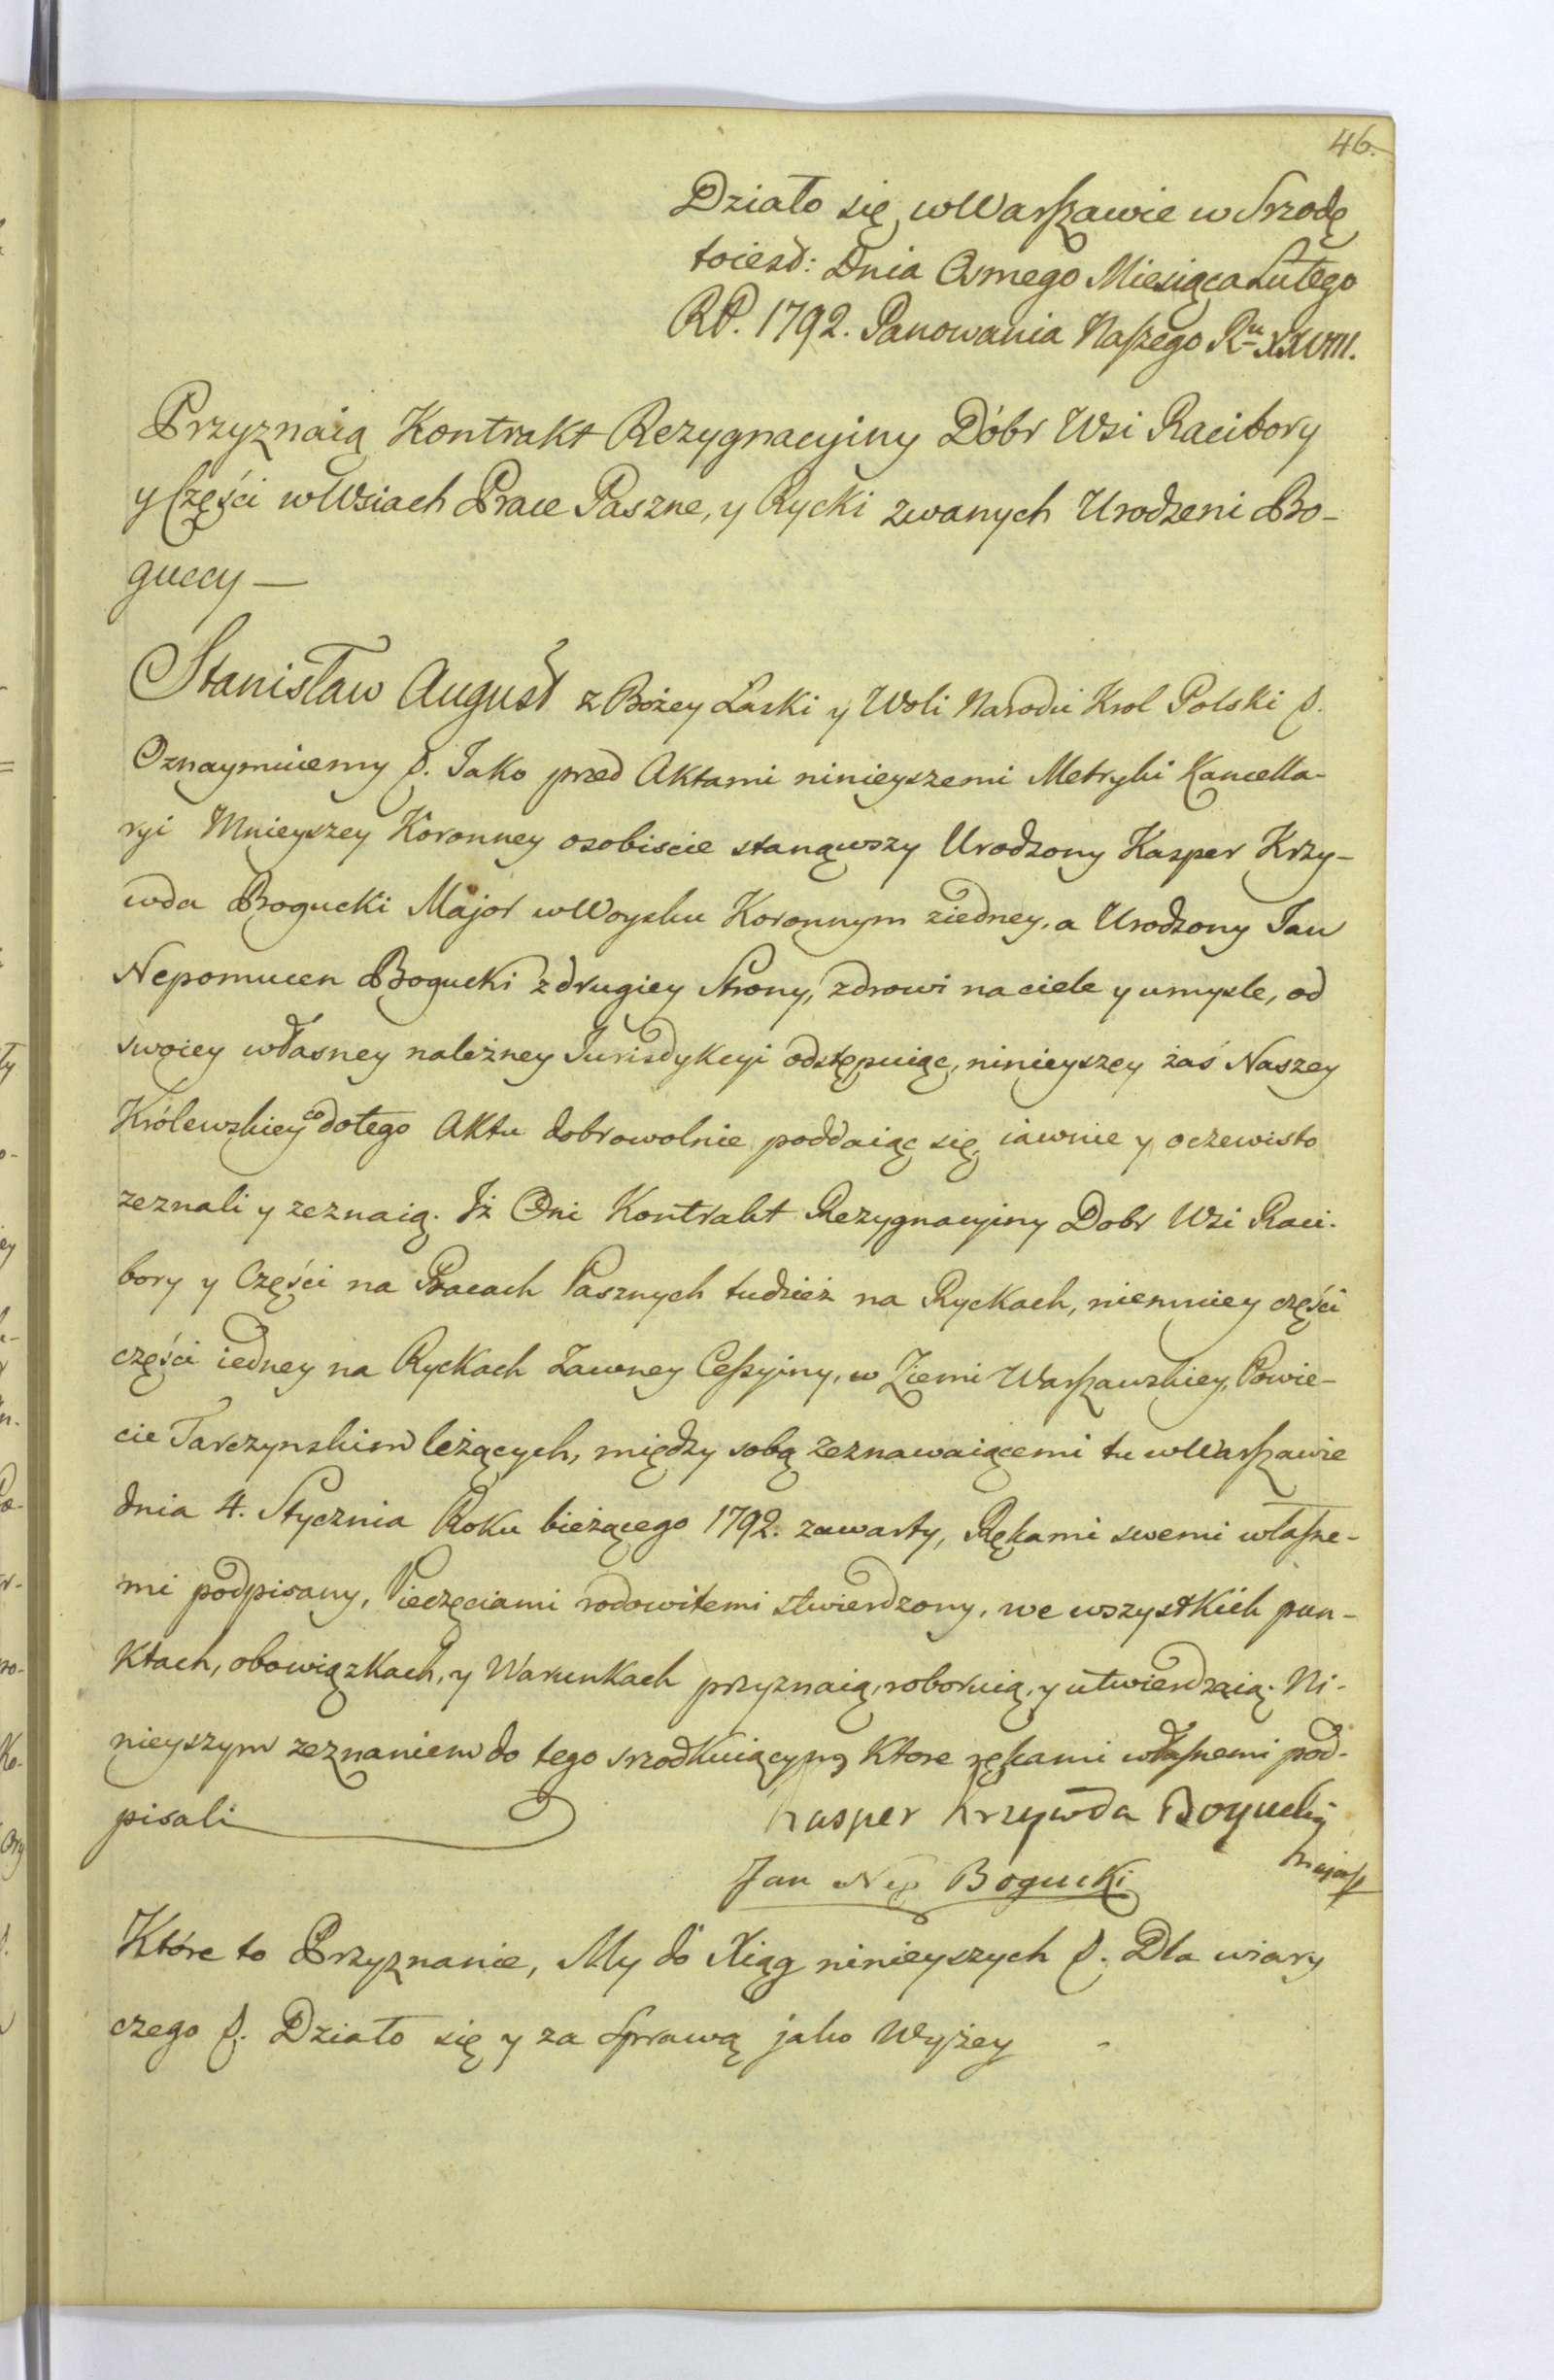 46.
Działo się w Warszawie w Srzodę
toiest: Dnia Osmego Miesiąca Lutego
RP. 1792. Panowania Naszego Rᵘ XXVIII.
Przyznaią Kontrakt Rezygnacyiny Dóbr Wsi Racibory
y Części w Wsiach Prace Paszne, y Rycki zwanych Urodzeni Bo-
guccy —
Stanisław August z Bożey Łaski y Woli Narodu Krol Polski &.
Oznaymuiemy &. Jako przed Aktami ninieyszemi Metryki Kancella-
ryi Mnieyszey Koronney osobiscie stanąwszy Urodzony Kasper Krzy-
wda Bogucki Major w Woysku Koronnym ziedney, a Urodzony Jan
Nepomucen Bogucki z drugiey Strony, zdrowi na ciele y umysle, od
swoiey własney należney Jurisdykcyi odstępuiąc, ninieyszey zaś Naszey
Królewskiey co do tego Aktu dobrowolnie poddaiąc się, iawnie y oczewisto
zeznali y zeznaią. Iż Oni Kontrakt Rezygnacyiny Dobr Wsi Raci-
bory y Części na Pracach Pasznych tudzież na Ryckach, niemniey części
części iedney na Ryckach Zawney Cessyiny, w Ziemi Warszawskiey, Powie-
cie Tarczynskim leżących, między sobą zeznawaiącemi tu w Warszawie
dnia 4. Stycznia Roku bieżącego 1792. zawarty, Rękami swemi własne-
mi podpisany, Pieczęciami rodowitemi stwierdzony, we wszystkich pun-
ktach, obowiązkach, y Warunkach przyznaią, roboruią, y utwierdzaią. Ni-
nieyszym zeznaniem do tego srzodkuiącym, ktore rękami własnemi pod-
pisali
Kasper Krzywda Bogucky
Major
Jan Nep Bogucki
Które to Przyznanie, My do Xiąg ninieyszych &. Dla wiary
czego &. Działo się y za Sprawą jako Wyżey -